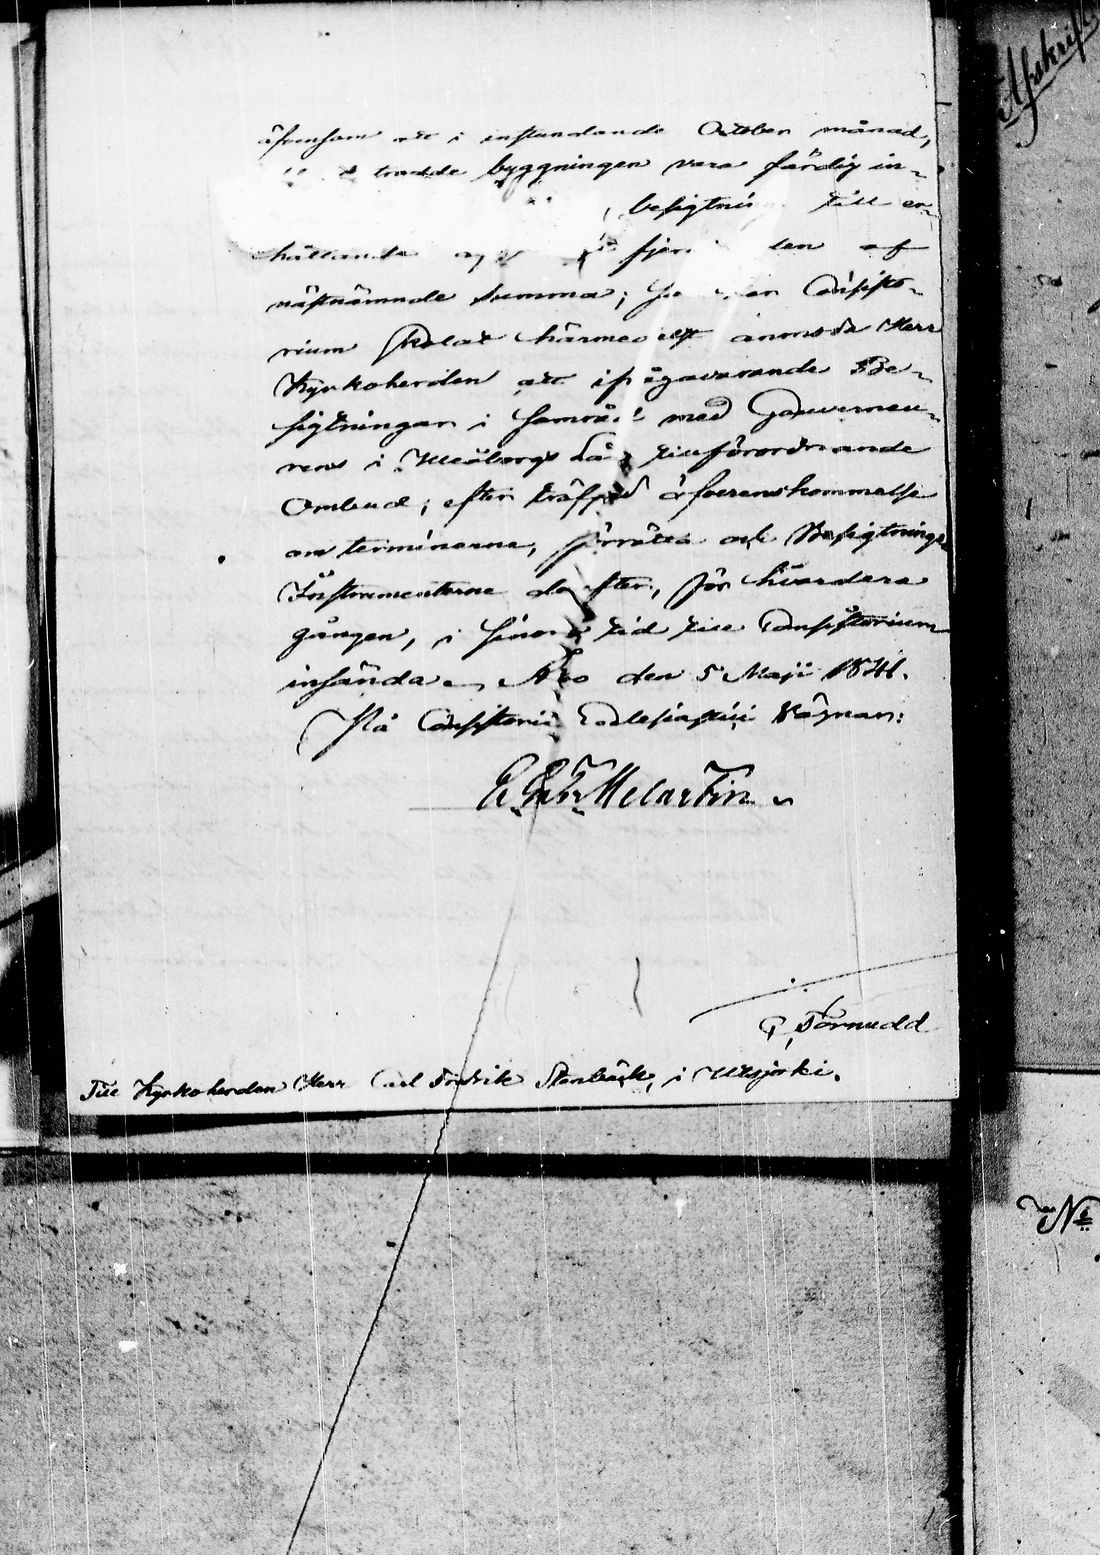 Afskrift
äfvensom att i instundande October månad,
trodde byggningen vara färdig in-
besigtnin till er-
hållande fjer den af
nästnämnde summa; Consisto-
rium skolat härmedelst anmoda Herr
Kyrkoherden att ifrågavarande Be-
sigtningar i samråd med Gouverneu-
rens i Uleåborgs Län tillförordnande
Ombud, efter träffad öfverenskommelse
om terminerne, förrätta och Besigtnings
Instrumenterne derefter, för hvardera
gången, i sinom tid till Consistorium
insända. Åbo den 5 Maji 1841.
På Consistorii Ecclesiastici Vägnar:
E. Gabr. Melartin
G Törnudd
Till Kyrkoherden Herr Carl Fredrik Stenbäck, i Utsjoki.
No